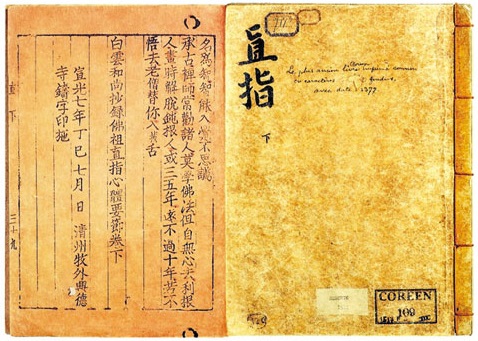 名爲知知能入不思議
承古禪師常勸諸人莫學佛法但自無心去利根
人晝時解脫鈍根人或三五年遠不過十年若不
悟去老僧替你入舌
白雲和尙抄錄佛祖直指心體要節卷下
宣光七年丁巳七月 日 淸州牧外興德
寺鑄字印施
直 下 三十九
直指
下
Le plus ancien livre coréen imprimé connu
en caractères fondus,
avec date = 1377
COREEN
109